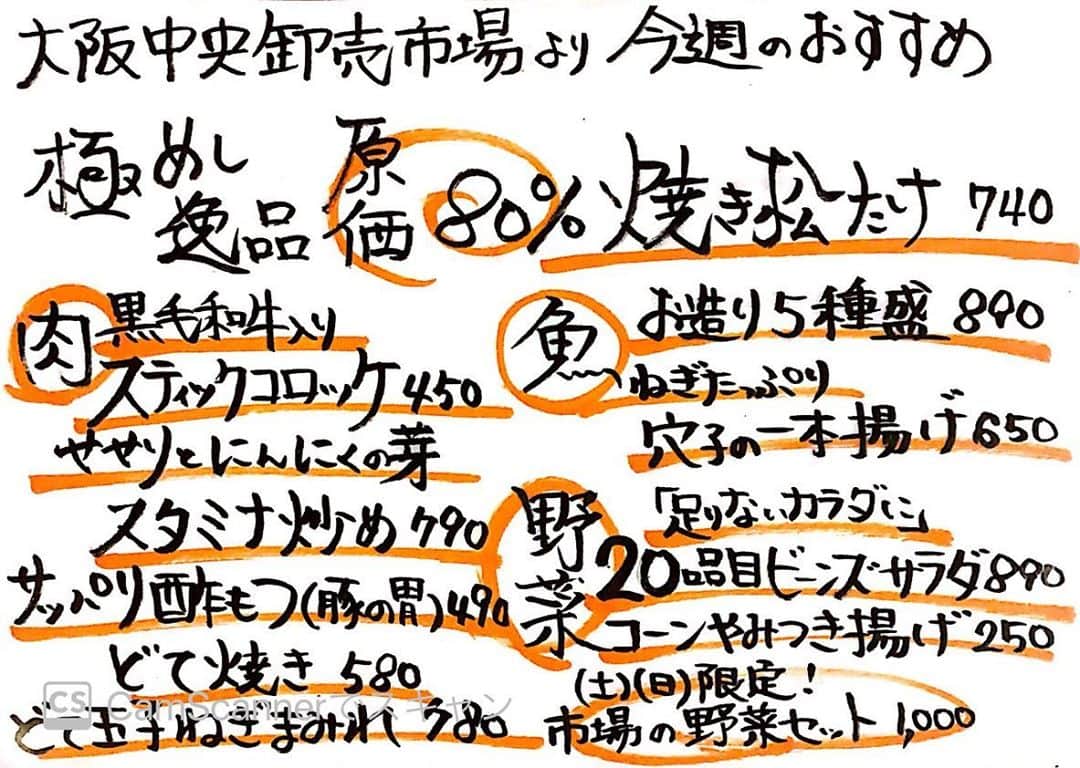 大阪中央卸売市場より 今週のおすすめ
極めし逸品 原価80% 焼き松たけ 740
肉
黒毛和牛入り
スティックコロッケ 450
せせりとにんにくの芽
スタミナ炒め 790
サッパリ酢もつ(豚の胃) 490
どて焼き 580
どて玉子ねぎまみれ 780
魚
お造り5種盛 890
ねぎたっぷり
穴子の一本揚げ 650
野菜
「足りないカラダに」
20品目ビーンズサラダ 890
コーンやみつき揚げ 250
(土)(日)限定!
市場の野菜セット 1,000
CS CamScannerでスキャン